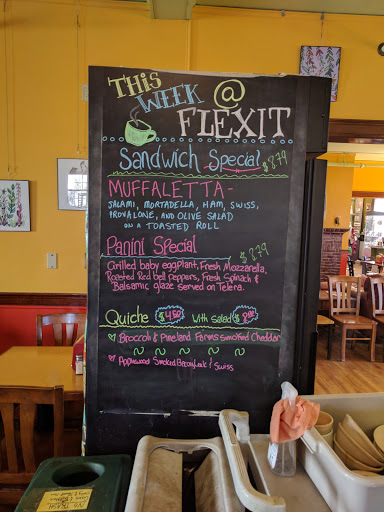 THIS
WEEK @
FLEXIT
Sandwich Special $8.79
MUFFALETTA -
SALAMI, MORTADELLA, HAM, SWISS,
PROVALONE, AND OLIVE SALAD
ON A TOASTED ROLL
Panini Special $8.79
Grilled baby eggplant, Fresh Mozzarella,
Roasted Red bell peppers, Fresh Spinach &
Balsamic glaze served on Telera.
Quiche $4.50 With Salad
Broccoli & Pineland Farms smoked Cheddar
Applewood Smoked Bacon, Leek & Swiss